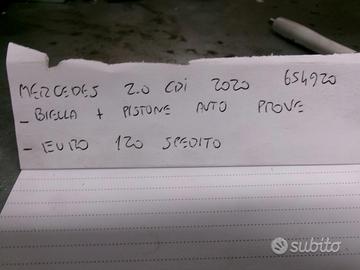 MERCEDES 2.0 CDI 2020 654920
- BIELLA + PISTONE AUTO PROVE
- EURO 120 SPEDITO
subito